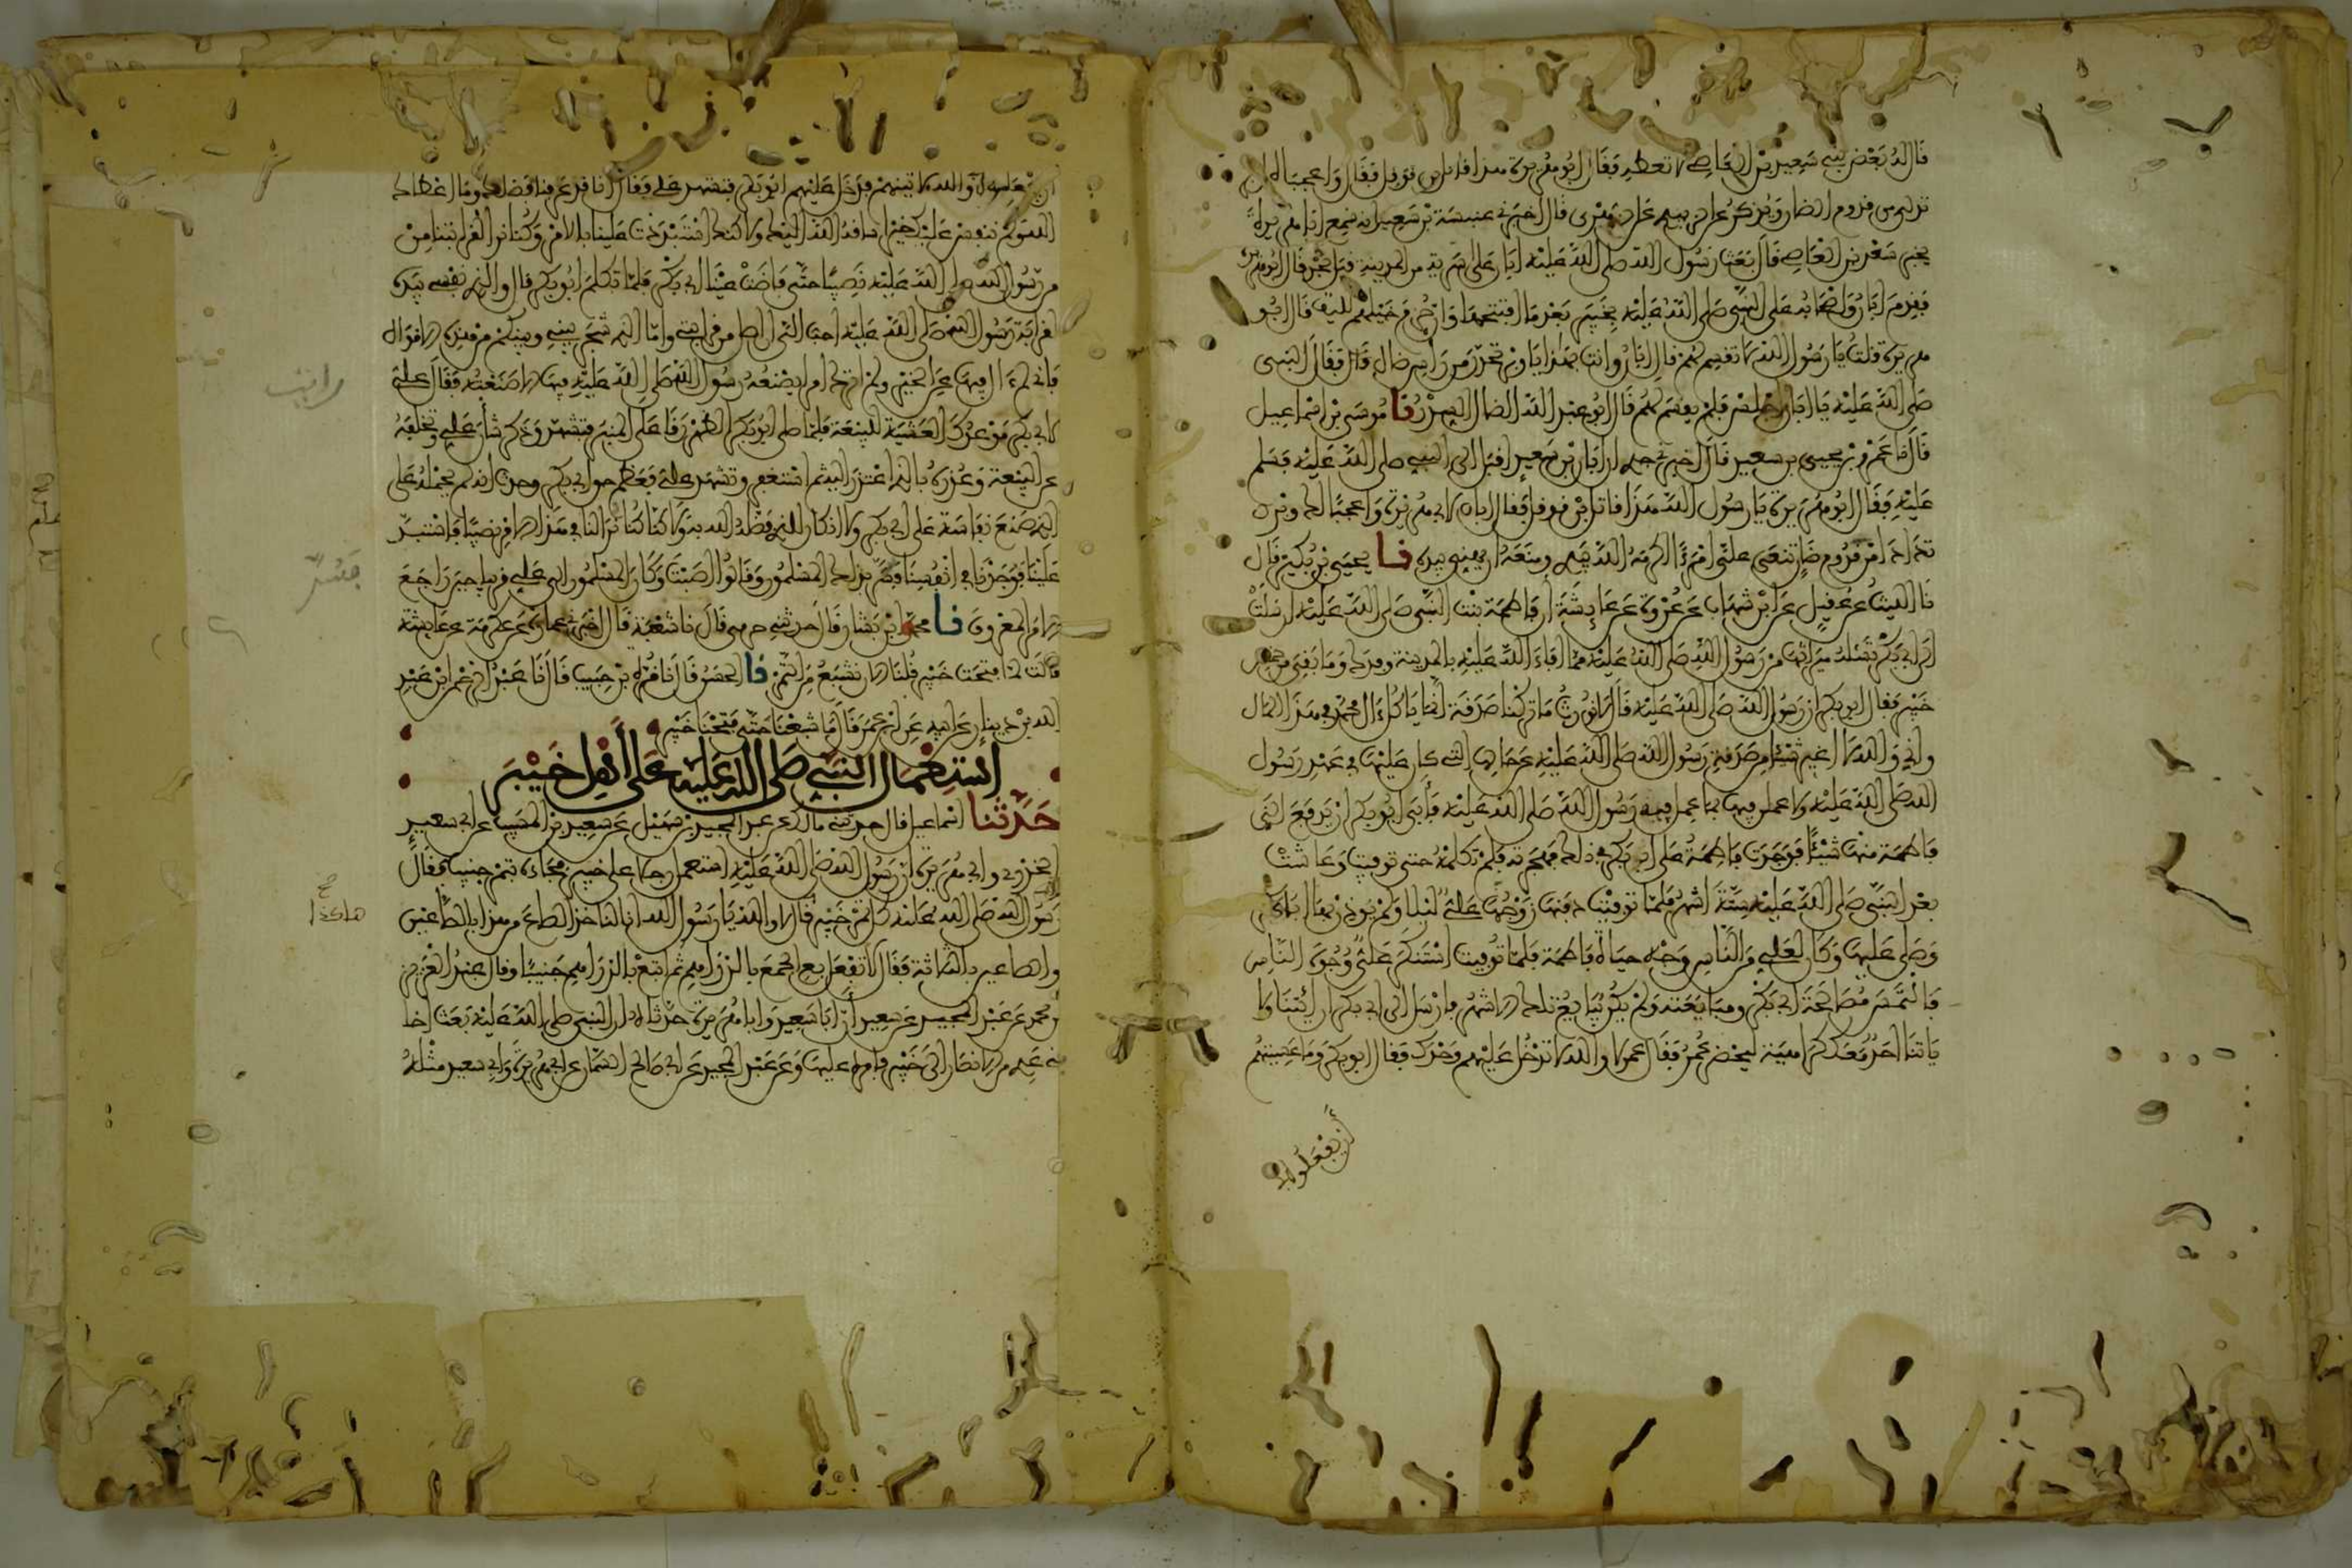 قال له بعض بني سعيد بن العاص لا تعطه فقال ابو هريرة هذا قاتل ابن قوقل فقال واعجباه لوبر
تدلى من قدوم الضان ويذكر عن الزبيدي عن الزهري قال اخبرني عنبسة بن سعيد انه سمع ابا هريرة
يخبر سعيد بن العاصي قال بعث رسول الله صلى الله عليه ابان على سرية من المدينة قبل نجد قال ابو هريرة
فقدم ابان واصحابه على النبي صلى الله عليه بخيبر بعد ما افتتحها وان حزم خيلهم لليف قال ابو
هريرة قلت يا رسول الله لا تقسم لهم قال ابان وانت بهذا يا وبر تحدر من راس ضال قال فقال النبي
صلى الله عليه يا ابان اجلس فلم يقسم لهم قال ابو عبد الله الضال السدر نا موسى بن اسماعيل
قال نا عمرو بن يحيى بن سعيد قال اخبرني جدي ان ابان بن سعيد اقبل الى النبي صلى الله عليه فسلم
عليه فقال ابو هريرة يا رسول الله هذا قاتل ابن قوقل فقال ابان لابي هريرة واعجبا لك وبر
تدادا من قدوم ضان تنعى علي امرءا اكرمه الله بيدي ومنعه ان يهينني بيده نا يحيى بن بكير قال
نا الليث عن عقيل عن ابن شهاب عن عروة عن عايشة ان فاطمة بنت النبي صلى الله عليه ارسلت
الى ابي بكر تسئله ميراثها من رسول الله صلى الله عليه مما افاء الله عليه بالمدينة وفدك وما بقي من خمس
خيبر فقال ابو بكر ان رسول الله صلى الله عليه قال لا نورث ما تركنا صدقة انما ياكل ال محمد في هذا المال
واني والله لا اغير شيئا من صدقة رسول الله صلى الله عليه عن حالها التي كان عليها في عهد رسول
الله صلى الله عليه ولاعملن فيها بما عمل فيها رسول الله صلى الله عليه فأبى ابو بكر ان يدفع الى
فاطمة منها شيئا فوجدت فاطمة على ابي بكر في ذلك فهجرته فلم تكلمه حتى توفيت وعاشت
بعد النبي صلى الله عليه ستة اشهر فلما توفيت دفنها زوجها علي ليلا ولم يوذن بها ابا بكر
وصلى عليها وكان لعلي من الناس وجه حياة فاطمة فلما توفيت استنكر علي وجوه الناس
فالتمس مصالحة ابي بكر ومبايعته ولم يكن يبايع تلك الاشهر فارسل الى ابي بكر ان ايتنا ولا
ياتنا احد معك كراهية ليحضر عمر فقال عمر لا والله لا تدخل عليهم وحدك فقال ابو بكر وما عسيتهم
أن يفعلوه
ان يفعلوه بي والله لاتينهم فدخل عليهم ابو بكر فتشهد علي فقال انا قد عرفنا فضلك وما اعطاك
الله ولم ننفس عليك خيرا ساقه الله اليك ولاكنك استبددت علينا بالامر وكنا نرا لقرابتنا من
من رسول الله صلى الله عليه نصيبا حتى فاضت عينا ابي بكر فلما تكلم ابو بكر قال والذي نفسي بيده
لقرابة رسول الله صلى الله عليه احب الي ان اصل من قرابتي واما الذي شجر بيني وبينكم من هذه الاموال
فاني لم ءال فيها عن الخير ولم اترك امرا يصنعه رسول الله صلى الله عليه فيها الا صنعته فقال علي
رايت
لابي بكر موعدك العشية للبيعة فلما صلى ابو بكر الظهر رقا على المنبر فتشهد وذكر شأن علي وتخلفه
عن البيعة وعذره بالذي اعتذر اليه ثم استغفر وتشهد علي فعظم حق ابي بكر وحدث انه لم يحمله على
الذي صنع نفاسة على ابي بكر ولا انكار للذي فضله الله به ولاكنا كنا نرا لنا في هذا الامر نصيبا فاستبد
علينا فوجدنا في انفسنا فسر بذلك المسلمون وقالوا اصبت وكان المسلمون الى علي قريبا حين راجع
الامر المعروف نا محمد بن بشار قال حدثني حرمي قال نا شعبة قال اخبرني عمارة عن عكرمة عن عايشة
قالت لما فتحت خيبر قلنا الان نشبع من التمر نا الحسن قال نا قرة بن حبيب قال نا عبد الرحمن ابن عبد
الله بن دينار عن ابيه عن ابن عمر قال ما شبعنا حتى فتحنا خيبر
استعمال النبي صلى الله عليه على أهل خيبر
حدثنا اسماعيل قال حدثني مالك عن عبد المجيد بن سهيل عن سعيد بن المسيب عن ابي سعيد
الخدري وابي هريرة ان رسول الله صلى الله عليه استعمل رجلا على خيبر فجاءه بتمر جنيب فقال
رسول الله صلى الله عليه كل تمر خيبر هاكذا قال لا والله يا رسول الله انا لناخذ الصاع من هذا بالصاعين
هاكذا
والصاعين بالثلاثة فقال لا تفعل بع الجمع بالدراهم ثم ابتع بالدراهم جنيبا وقال عبد العزيز
بن محمد عن عبد المجيد عن سعيد أن ابا سعيد وابا هريرة حدثاه ان النبي صلى الله عليه بعث اخا
بني عدي من الانصار الى خيبر فامره عليها وعن عبد المجيد عن ابي صالح السمان عن ابي هريرة وابي سعيد مثله